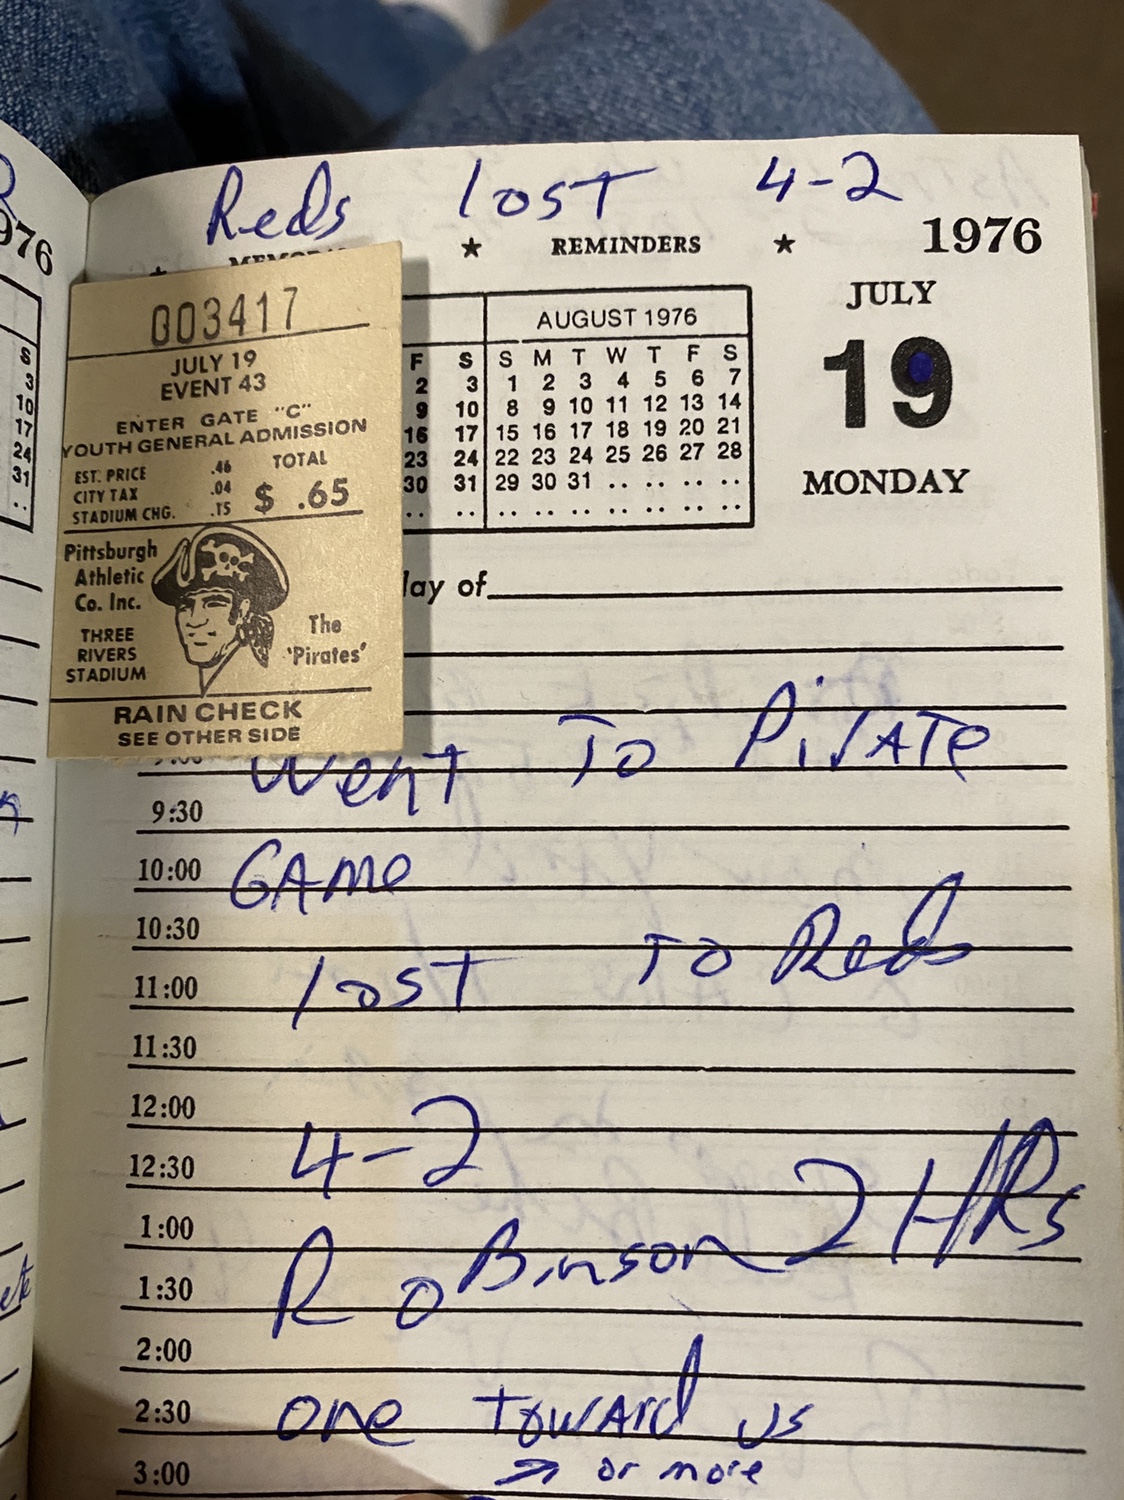 Reds lost 4-2
★ REMINDERS ★ 1976
JULY
19
MONDAY
003417
JULY 19
EVENT 43
ENTER GATE "C"
YOUTH GENERAL ADMISSION
EST. PRICE .46 TOTAL
CITY TAX .04
STADIUM CHG. .15 $ .65
Pittsburgh
Athletic
Co. Inc.
THREE
RIVERS
STADIUM
The
'Pirates'
RAIN CHECK
SEE OTHER SIDE
F S
2 3
9 10
16 17
23 24
30 31
.. ..
AUGUST 1976
S M T W T F S
1 2 3 4 5 6 7
8 9 10 11 12 13 14
15 16 17 18 19 20 21
22 23 24 25 26 27 28
29 30 31 .. .. .. ..
.. .. .. .. .. .. ..
of
Went To PirATe
9:30
10:00 GAme
10:30
lost To Reds
11:00
11:30
12:00
4-2
12:30
1:00
RoBinson 2 HRs
1:30
2:00
2:30 one TowArd us
3:00 → or more
976
S
3
10
17
24
31
..